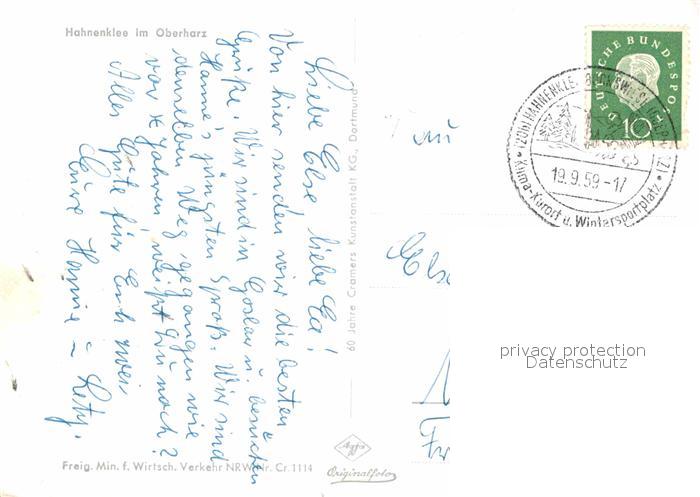 Hahnenklee im Oberharz
Liebe Else, liebe Ea!
Von hier senden wir die besten
Grüße. Wir sind in Goslar u. besuchen
Hanne's jüngsten Sproß. Wir sind
denselben Weg gegangen wie
vor Jahren, weißt Du noch?
Alles Gute für Euch zwei
Eure Hanne
60 Jahre Cramers Kunstanstalt KG., Dortmund
Freig. Min. f. Wirtsch. Verkehr NRW Nr. Cr. 1114
Agfa
Originalfoto
DEUTSCHE BUNDESPOST
10
(20b) HAHNENKLEE
19.9.59-17
Klima-Kurort u. Wintersportplatz
An
Else
privacy protection
Datenschutz